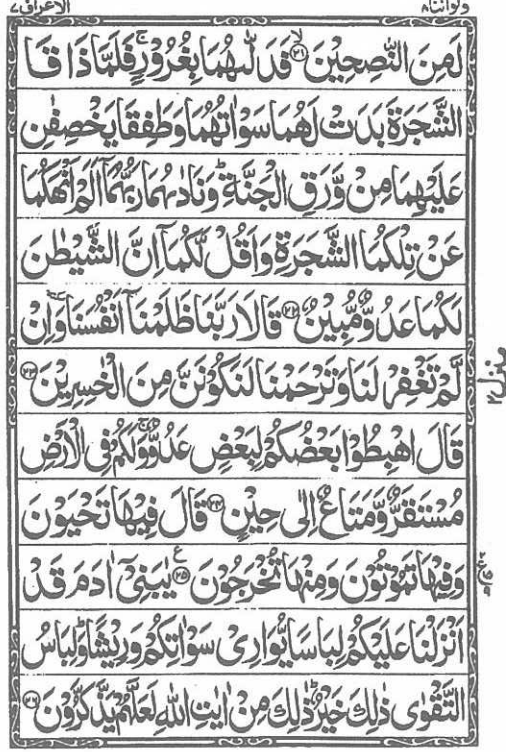 الاعراف ٧ ولواننا ٨
لَمِنَ النّٰصِحِيْنَ ﴿٢١﴾ فَدَلّٰىهُمَا بِغُرُوْرٍ ۚ فَلَمَّا ذَاقَا
الشَّجَرَةَ بَدَتْ لَهُمَا سَوْاٰتُهُمَا وَطَفِقَا يَخْصِفٰنِ
عَلَيْهِمَا مِنْ وَّرَقِ الْجَنَّةِ ؕ وَنَادٰىهُمَا رَبُّهُمَاۤ اَلَمْ اَنْهَكُمَا
عَنْ تِلْكُمَا الشَّجَرَةِ وَاَقُلْ لَّكُمَاۤ اِنَّ الشَّيْطٰنَ
لَكُمَا عَدُوٌّ مُّبِيْنٌ ﴿٢٢﴾ قَالَا رَبَّنَا ظَلَمْنَاۤ اَنْفُسَنَا ٚ وَاِنْ
لَّمْ تَغْفِرْ لَنَا وَتَرْحَمْنَا لَنَكُوْنَنَّ مِنَ الْخٰسِرِيْنَ ﴿٢٣﴾
منزل ٢
قَالَ اهْبِطُوْا بَعْضُكُمْ لِبَعْضٍ عَدُوٌّ ۚ وَلَكُمْ فِى الْاَرْضِ
مُسْتَقَرٌّ وَّمَتَاعٌ اِلٰى حِيْنٍ ﴿٢٤﴾ قَالَ فِيْهَا تَحْيَوْنَ
وَفِيْهَا تَمُوْتُوْنَ وَمِنْهَا تُخْرَجُوْنَ ﴿٢٥﴾ ع يٰبَنِىْۤ اٰدَمَ قَدْ
اَنْزَلْنَا عَلَيْكُمْ لِبَاسًا يُّوَارِىْ سَوْاٰتِكُمْ وَرِيْشًا ؕ وَلِبَاسُ
التَّقْوٰى ذٰلِكَ خَيْرٌ ؕ ذٰلِكَ مِنْ اٰيٰتِ اللّٰهِ لَعَلَّهُمْ يَذَّكَّرُوْنَ ﴿٢٦﴾